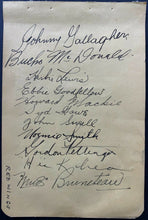 Johnny Gallagher
Bucko McDonald
Herbie Lewis
Ebbie Goodfellow
Howard Mackie
Syd Howe
John Sorrell
Normie Smith
Gordon Pettinger
Hec Kilrea
Mud Bruneteau
RED WINGS